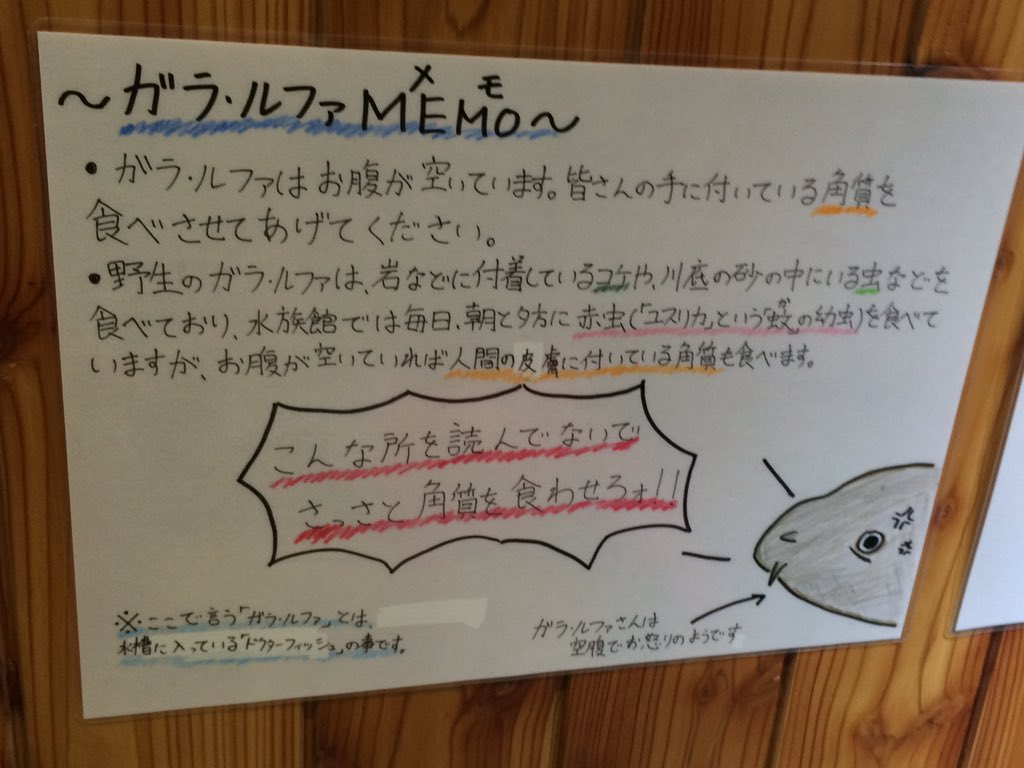 ～ガラ・ルファMEMO～
メ モ
・ガラ・ルファはお腹が空いています。皆さんの手に付いている角質を
食べさせてあげてください。
・野生のガラ・ルファは、岩などに付着しているコケや、川底の砂の中にいる虫などを
食べており、水族館では毎日、朝と夕方に赤虫(「ユスリカ」という「蚊」の幼虫)を食べて
か
いますが、お腹が空いていれば人間の皮膚に付いている角質も食べます。
こんな所を読んでないで
さっさと角質を食わせろォ!!
※ここで言う「ガラ・ルファ」とは、
水槽に入っている「ドクターフィッシュ」の事です。
ガラ・ルファさんは
空腹でお怒りのようです